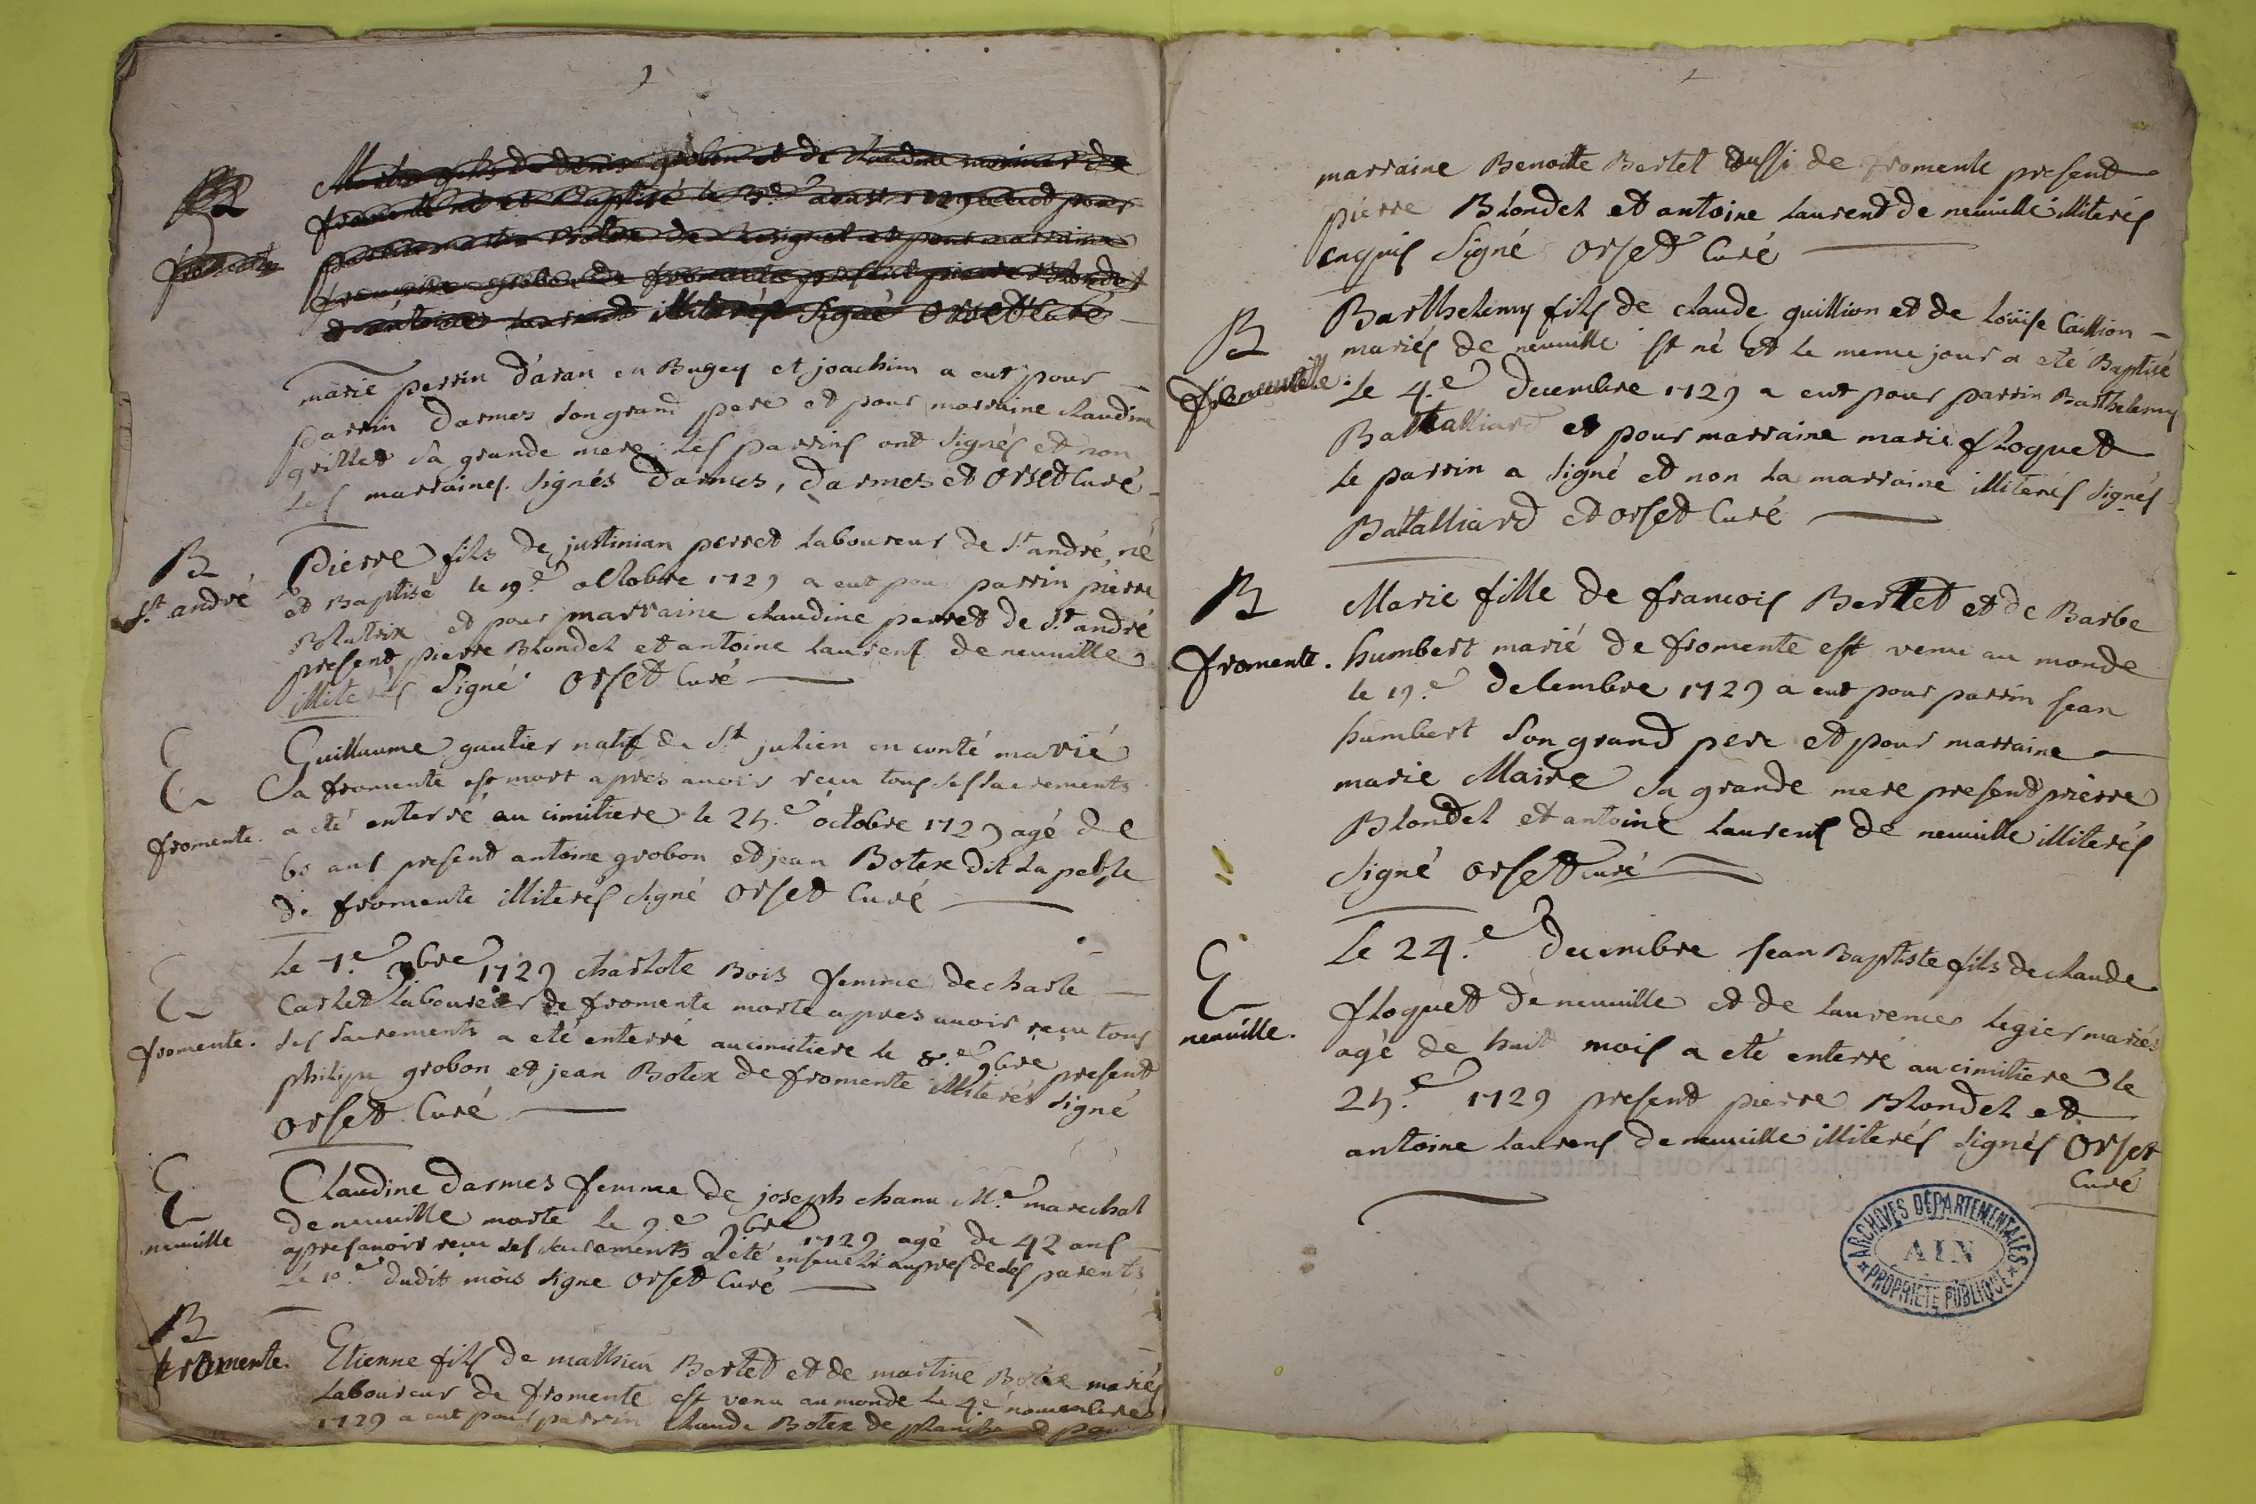 B
fromente
Martin fils de denis grobon et de claudine
fromente né et Baptisé le 3.e aoust 1729 a eut pour
parrin Botex de et pour marraine
grobon de fromente present pierre Blondel
et antoine laurent illiterés Signé Orset Curé
marie perrin d'aran en Bugey et joachim a eut pour
parrin Darmes Son grand pere et pour marraine claudine
grillet Sa grande mere: les parrins ont Signés et non
les marraines. Signés Darmes, Darmes et Orset Curé
B
St. andré
Pierre fils de justinian perret Laboureur de St. andré, né
et Baptisé le 19.e octobre 1729 a eut pour parrin pierre
Blutrix et pour marraine claudine perret de St. andré
present pierre Blondel et antoine Laurens de neuville
illiterés Signé Orset Curé
E
fromente.
Guillaume gautier natif de St. julien en conté marié
a fromente est mort apres avoir recu tous ses sacrements
a eté enterré au cimitiere le 25.e octobre 1729 agé de
60 ans present antoine grobon et jean Botex dit La
de fromente illiterés Signé Orset Curé
E
fromente.
Le 7.e 9bre 1729 charlote Bois femme de charle
Carlet Laboureur de fromente morte apres avoir recu tous
ses sacrements a eté enterré au cimitiere le 8.e 9bre present
philipe grobon et jean Botex de fromente illiterés Signé
Orset Curé
E
neuville
Claudine Darmes femme de joseph chanu M.e marechal
de neuville morte le 9.e 9bre 1729 agé de 42 ans
apres avoir recu ses sacrements a eté enseveli aupres de ses parents
le 10.e dudit mois Signe Orset Curé
B
fromente.
Etienne fils de mathieu Bertet et de martine Botex mariés
Laboureur de fromente est venu au monde le 4.e novembre
1729 a eut pour parrin claude Botex de et pour
marraine Benoite Bertet aussi de fromente present
pierre Blondel et antoine Laurent de neuville illiterés
enquis Signé Orset Curé
B
neuville.
Barthelemy fils de claude guillion et de Loüise Caillion
mariés de neuville est né et le meme jour a eté Baptisé
Le 4.e decembre 1729 a eut pour parrin Barthelemy
Batalliard et pour marraine marie floquet
Le parrin a Signé et non la marraine illiterés Signés
Batalliard et Orset Curé
B
fromente.
Marie fille de francois Bertet et de Barbe
humbert marié de fromente est venu au monde
le 19.e decembre 1729 a eut pour parrin jean
humbert Son grand pere et pour marraine
marie Maire Sa grande mere present pierre
Blondel et antoine Laurens de neuville illiterés
Signé Orset Curé
E
neuville.
Le 24.e decembre jean Baptiste fils de claude
floquet de neuville et de Laurence legier mariés
agé de huit mois a eté enterré au cimitiere le
25.e 1729 present pierre Blondel et
antoine Laurens de neuville illiterés Signés Orset
Curé
ARCHIVES DÉPARTEMENTALES
AIN
PROPRIÉTÉ PUBLIQUE